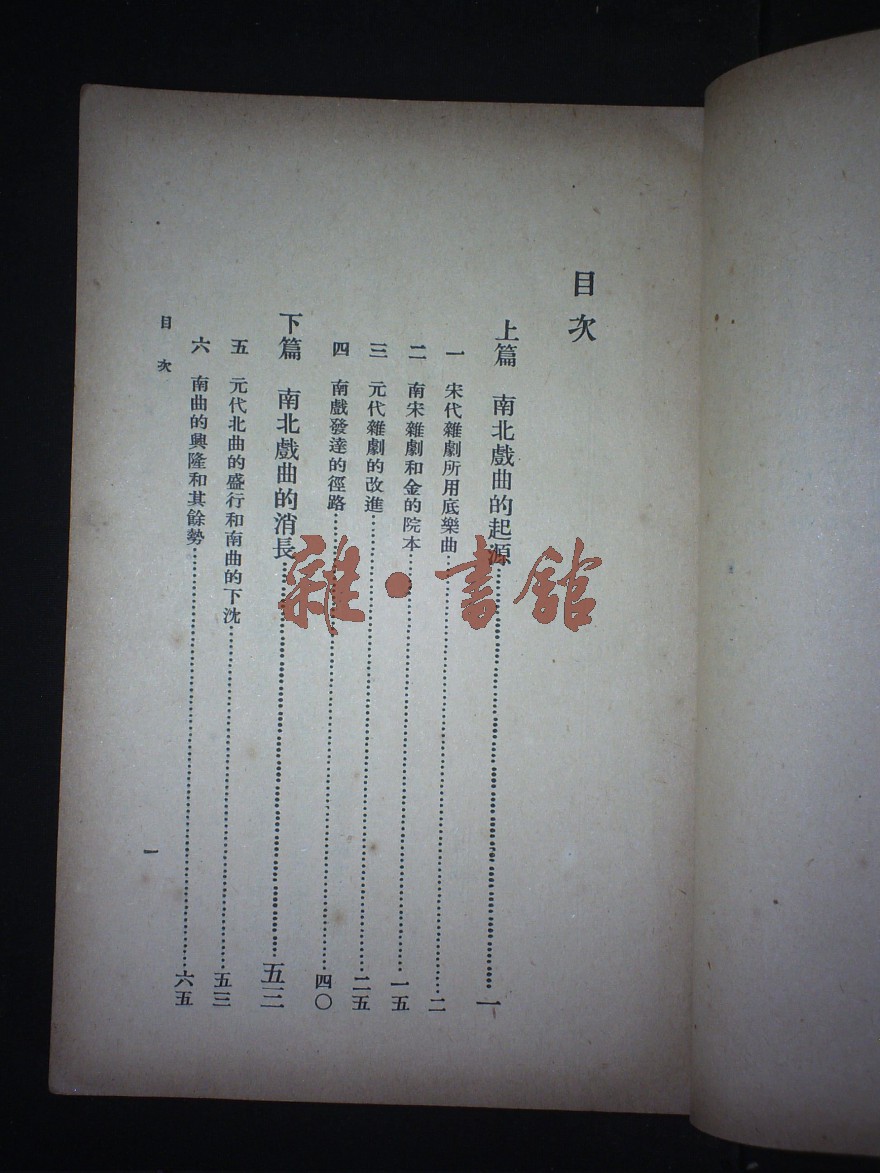 目次
上篇 南北戲曲的起源……一
一 宋代雜劇所用底樂曲……二
二 南宋雜劇和金的院本……一五
三 元代雜劇的改進……二五
四 南戲發達的徑路……四〇
下篇 南北戲曲的消長……五三
五 元代北曲的盛行和南曲的下沈……五三
六 南曲的興隆和其餘勢……六五
目次
一
雜·書館